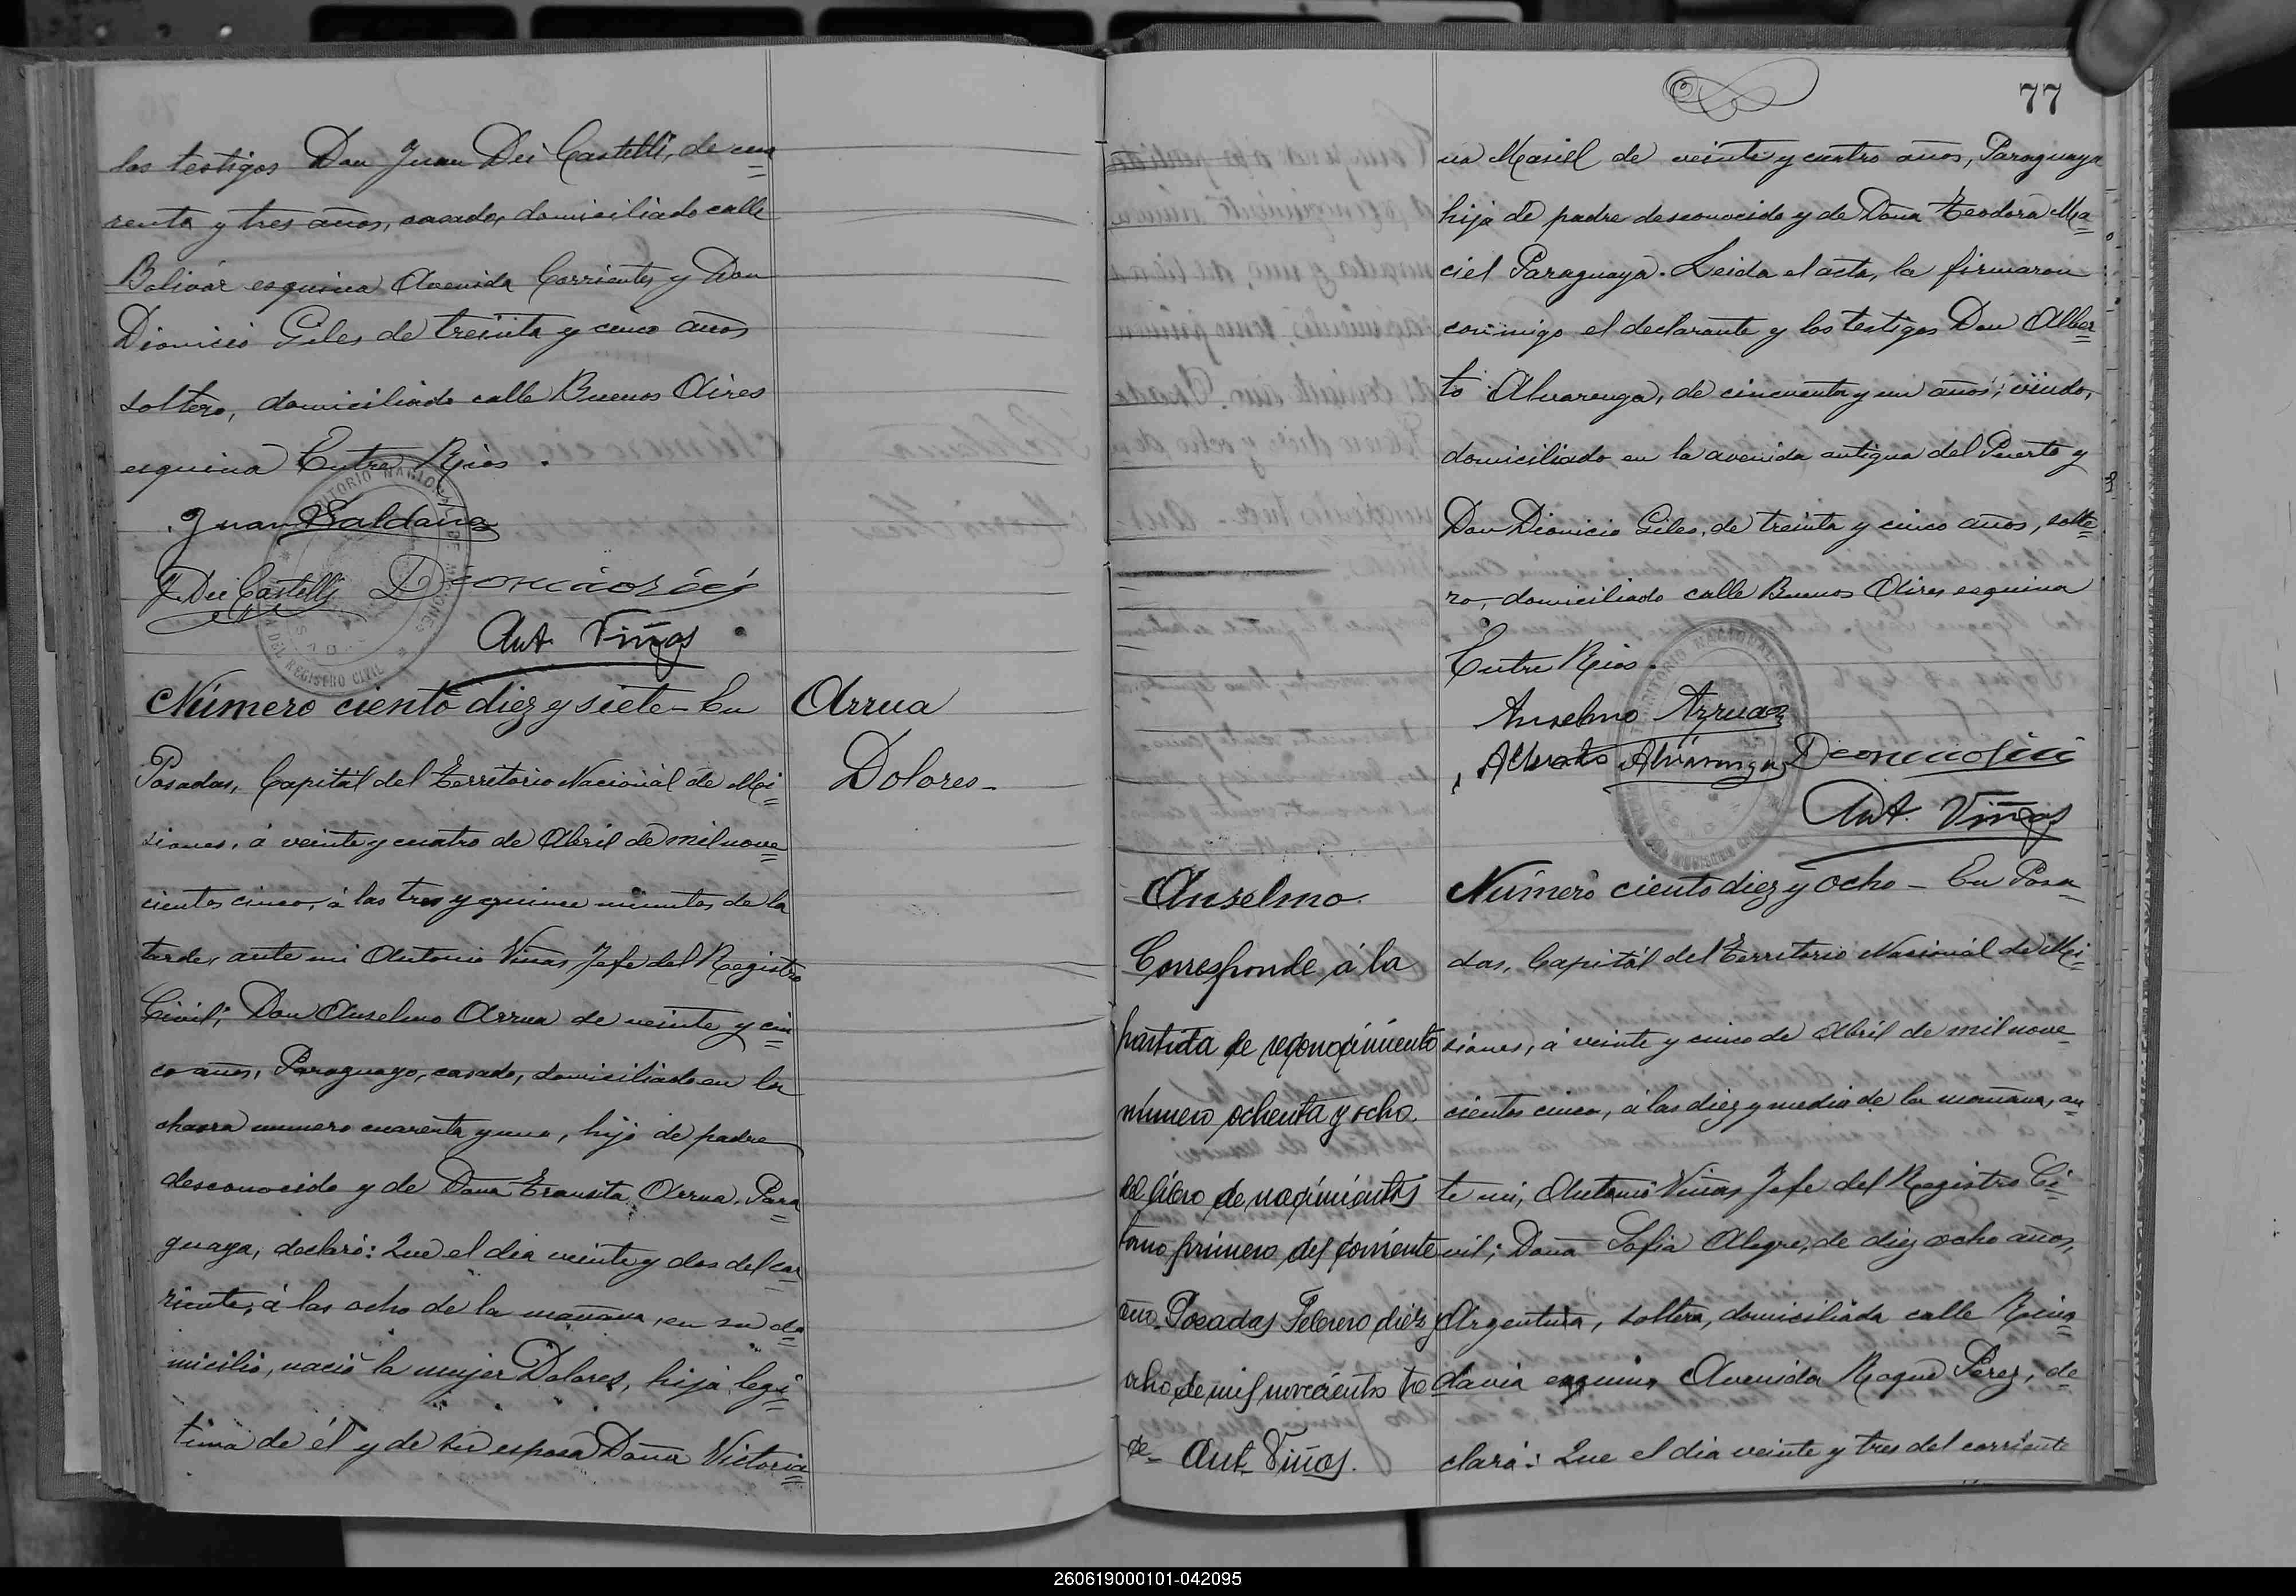 los testigos Don Juan Dei Castelli, de cua
renta y tres años, casado, domiciliado calle
Bolivar esquina Avenida Corrientes y Don
Dionicio Giles de treinta y cinco años
soltero, domiciliado calle Buenos Aires
esquina Entre Rios.
Juan Saldaña
J. Dei Castelli
Ant. Viñas.
Número ciento diez y siete - En
Posadas, Capital del Territorio Nacional de Mi
siones, á veinte y cuatro de Abril de mil nove
cientos cinco, á las tres y quince minutos de la
tarde, ante mi Antonio Viñas Jefe del Registro
Civil; Don Anselmo Arrua de veinte y cin
co años, Paraguayo, casado, domiciliado en la
chacra numero cuarenta y una, hijo de padre
desconocido y de Doña Transita Arrua, Para
guaya, declaró: Que el dia veinte y dos del cor
riente, á las ocho de la mañana, en su do
micilio, nació la mujer Dolores, hija legi
tima de él y de su esposa Doña Victoria
Arrua
Dolores -
77
na Masiel de veinte y cuatro años, Paraguaya
hija de padre desconocido y de Doña Teodora Ma
ciel Paraguaya. Leida el acta, la firmaron
conmigo el declarante y los testigos Don Alber
to Alvarenga, de cincuenta y un años, viudo,
domiciliado en la avenida antigua del Puerto y
Don Dionicio Giles, de treinta y cinco años, solte
ro, domiciliado calle Buenos Aires esquina
Entre Rios.
Anselmo Arrua
Alberto Alvarenga
Ant. Viñas
Anselmo
Corresponde á la
partida de reconocimiento
número ochenta y ocho
del libro de nacimientos
tomo primero del corriente
año. Posadas Febrero diez y
ocho de mil novecientos tre
ce - Ant. Viñas.
Número ciento diez y ocho - En Posa
das, Capital del Territorio Nacional de Mi
siones, á veinte y cinco de Abril de mil nove
cientos cinco, á las diez y media de la mañana, an
te mi, Antonio Viñas Jefe del Registro Ci
vil; Doña Sofia Alegre, de diez ocho años,
Argentina, soltera, domiciliada calle Riva
davia esquina Avenida Roque Perez, de
claró: Que el dia veinte y tres del corriente
260619000101-042095